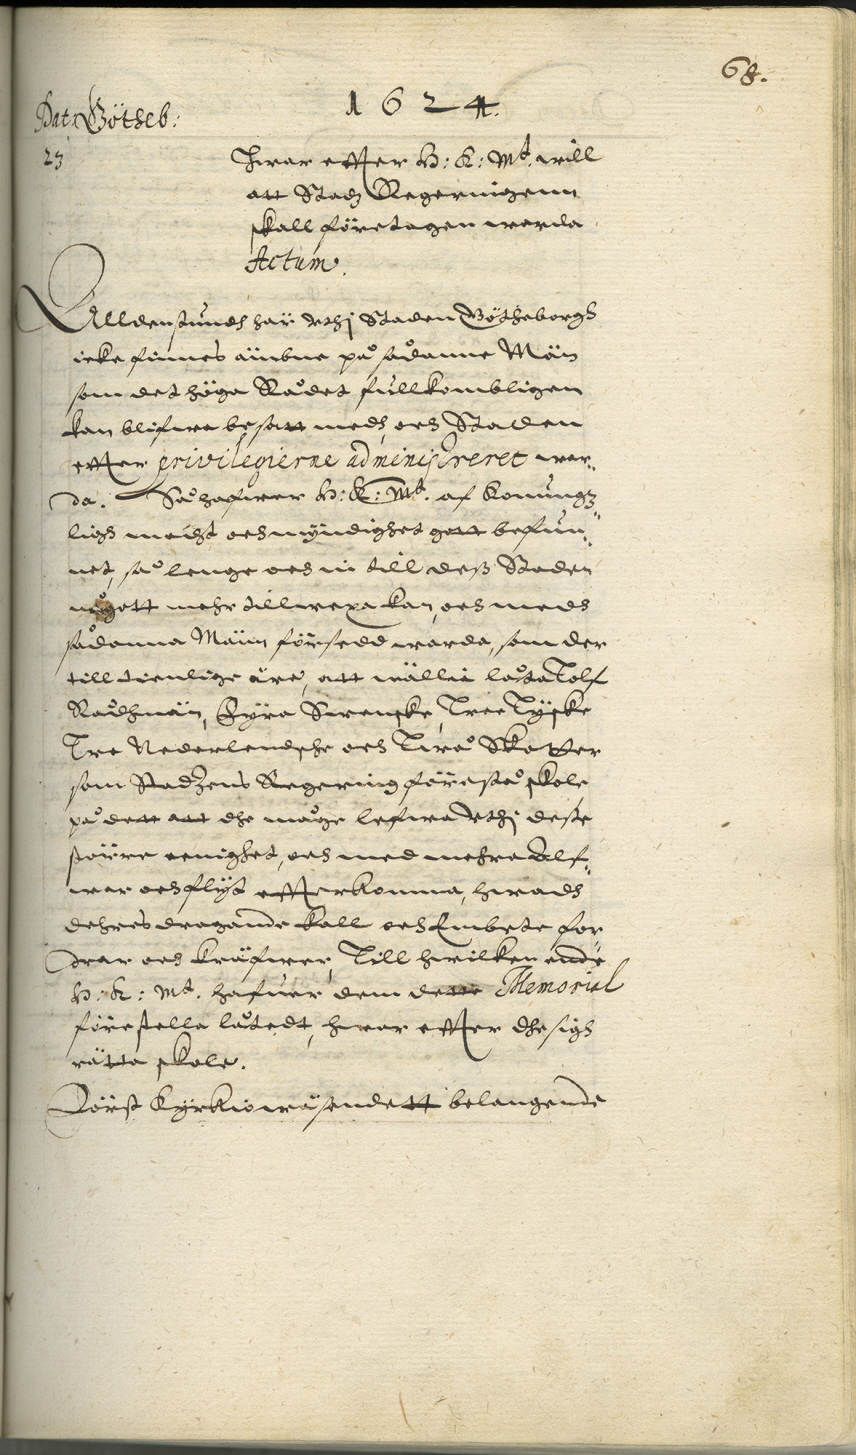 68.
1624.
Dat: Götheb:
23
Hwar effter H: K: Mt. will
att Stadz Regeringenn
skall företagen warda
Actum.
Alldenstundh här uthj Staden Götheborgh
icke finnes ännu på sådanne Män
som det höga Rådet fullkombligen
kan blifwa besatt medh, och Staden
effter privilegierne administreret war„
da. Så hafwer H: K: Mt. af Konungz„
ligh macht och myndighet gott befun„
net, så lenge och in till dess Staden
någott mehr tillwexa kan, och medh
sådanna Männ försedd warda, som der
till tienlige äre, att wällia låta Tolf
Rådhmän, Fyra Swenske, Tree Tyske
Tre Nederlendsche och Två Skotter
som Stadzens Regering förestå skole
på dett att dhe måge lefwa uthj desse
större eenighet, och med mehra Alf„
war och flijt effterkomma, hwadh
dehres dragande kall och Embete for
drar och kräfwer, Till hwilken ende
H: K: Mt. hafuer dem dette Memorial
förestella låtedt, hwar effter dhe sigh
rätta skole.
Först Kyrkiowäsendett belangende